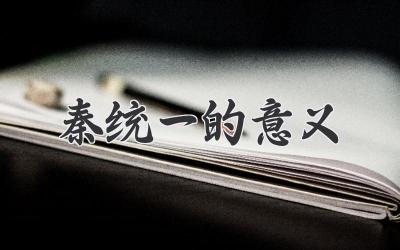 秦统一的意义